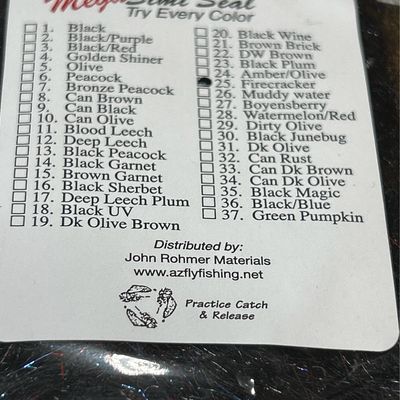 Simi Seal
Try Every Color
1. Black
2. Black/Purple
3. Black/Red
4. Golden Shiner
5. Olive
6. Peacock
7. Bronze Peacock
8. Can Brown
9. Can Black
10. Can Olive
11. Blood Leech
12. Deep Leech
13. Black Peacock
14. Black Garnet
15. Brown Garnet
16. Black Sherbet
17. Deep Leech Plum
18. Black UV
19. Dk Olive Brown
20. Black Wine
21. Brown Brick
22. DW Brown
23. Black Plum
24. Amber/Olive
25. Firecracker
26. Muddy water
27. Boyensberry
28. Watermelon/Red
29. Dirty Olive
30. Black Junebug
31. Dk Olive
32. Can Rust
33. Can Dk Brown
34. Can Dk Olive
35. Black Magic
36. Black/Blue
37. Green Pumpkin
Distributed by:
John Rohmer Materials
www.azflyfishing.net
Practice Catch
& Release